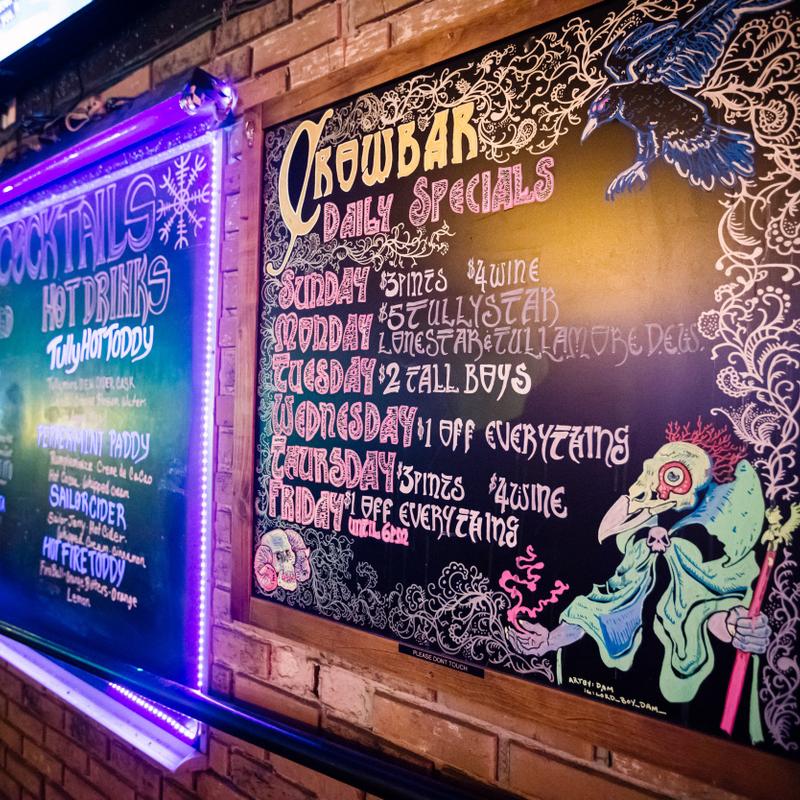 COCKTAILS
HOT DRINKS
Tully HOT TODDY
Tullamore DEW CIDER CASK
Water
PEPPERMINT PADDY
Creme de Cacao
Hot Cocoa Whipped cream
SAILOR CIDER
Sailor Jerry Hot Cider
Whipped Cream Cinnamon
HOT FIRE TODDY
FireBall-Orange Bitters-Orange
Lemon
CROWBAR
DAILY SPECIALS
SUNDAY $3 PINTS $4 WINE
MONDAY $5 TULLYSTAR
LONESTAR & TULLAMORE DEW
TUESDAY $2 TALL BOYS
WEDNESDAY $1 OFF EVERYTHING
THURSDAY $3 PINTS $4 WINE
FRIDAY $1 OFF EVERYTHING
UNTIL 6PM
PLEASE DONT TOUCH
ART BY: DAM
IG: LORD_BOY_DAM_